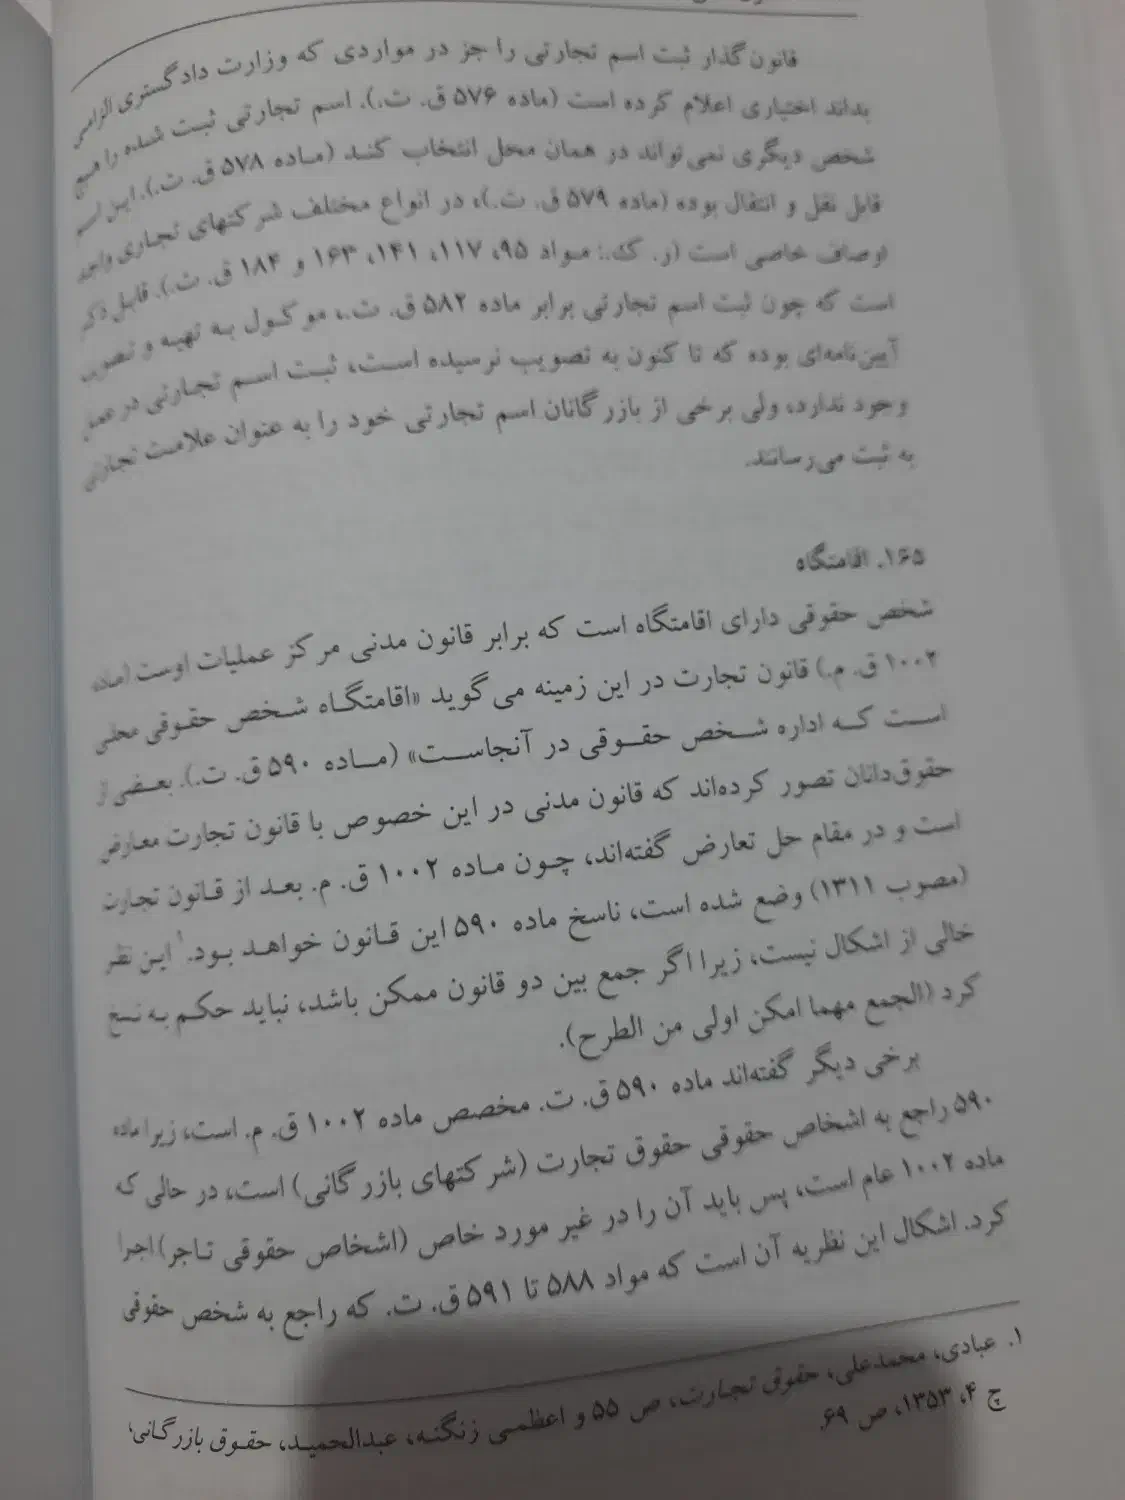 قانون‌گذار ثبت اسم تجارتی را جز در مواردی که وزارت دادگستری الزامی
بداند اختیاری اعلام کرده است (ماده ۵۷۶ ق. ت.). اسم تجارتی ثبت شده را هیچ
شخص دیگری نمی‌تواند در همان محل انتخاب کند (ماده ۵۷۸ ق. ت.). این اسم
قابل نقل و انتقال بوده (ماده ۵۷۹ ق. ت.)، در انواع مختلف شرکتهای تجاری واجد
اوصاف خاصی است (ر. ک.: مواد ۹۵، ۱۱۷، ۱۴۱، ۱۶۳ و ۱۸۴ ق. ت.). قابل ذکر
است که چون ثبت اسم تجارتی برابر ماده ۵۸۲ ق. ت.، موکول به تهیه و تصویب
آیین‌نامه‌ای بوده که تا کنون به تصویب نرسیده است، ثبت اسم تجارتی در عمل
وجود ندارد، ولی برخی از بازرگانان اسم تجارتی خود را به عنوان علامت تجارتی
به ثبت می‌رسانند.
۱۶۵. اقامتگاه
شخص حقوقی دارای اقامتگاه است که برابر قانون مدنی مرکز عملیات اوست (ماده
۱۰۰۲ ق. م.) قانون تجارت در این زمینه می‌گوید «اقامتگاه شخص حقوقی محلی
است که اداره شخص حقوقی در آنجاست» (ماده ۵۹۰ ق. ت.). بعضی از
حقوق‌دانان تصور کرده‌اند که قانون مدنی در این خصوص با قانون تجارت معارض
است و در مقام حل تعارض گفته‌اند، چون ماده ۱۰۰۲ ق. م. بعد از قانون تجارت
(مصوب ۱۳۱۱) وضع شده است، ناسخ ماده ۵۹۰ این قانون خواهد بود.۱ این نظر
خالی از اشکال نیست، زیرا اگر جمع بین دو قانون ممکن باشد، نباید حکم به نسخ
کرد (الجمع مهما امکن اولی من الطرح).
برخی دیگر گفته‌اند ماده ۵۹۰ ق. ت. مخصص ماده ۱۰۰۲ ق. م. است، زیرا ماده
۵۹۰ راجع به اشخاص حقوقی حقوق تجارت (شرکتهای بازرگانی) است، در حالی که
ماده ۱۰۰۲ عام است، پس باید آن را در غیر مورد خاص (اشخاص حقوقی تاجر) اجرا
کرد. اشکال این نظریه آن است که مواد ۵۸۸ تا ۵۹۱ ق. ت. که راجع به شخص حقوقی
۱. عبادی، محمدعلی، حقوق تجارت، ص ۵۵ و اعظمی زنگنه، عبدالحمید، حقوق بازرگانی،
چ ۴، ۱۳۵۳، ص ۶۹.